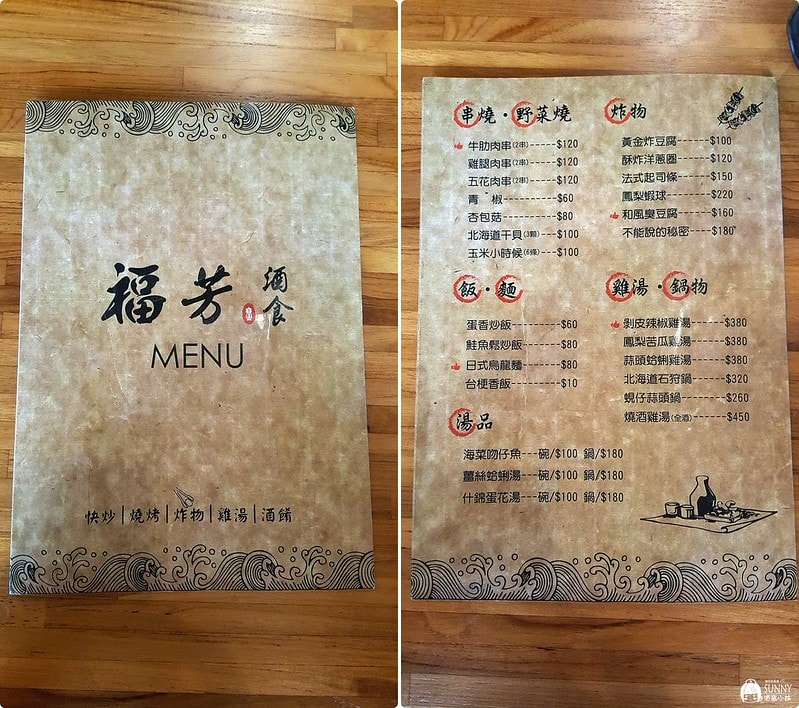 福芳 酒食
MENU
快炒|燒烤|炸物|雞湯|酒餚
串燒・野菜燒
牛肋肉串(2串)-----$120
雞腿肉串(2串)-----$120
五花肉串(2串)-----$120
青 椒-----------$60
杏包菇----------$80
北海道干貝(3顆)---$100
玉米小時候(6條)---$100
炸物
黃金炸豆腐------$100
酥炸洋蔥圈------$120
法式起司條------$150
鳳梨蝦球--------$220
和風臭豆腐------$160
不能說的秘密----$180
飯・麵
蛋香炒飯--------$60
鮭魚鬆炒飯------$80
日式烏龍麵------$80
台梗香飯--------$10
雞湯・鍋物
剝皮辣椒雞湯-----$380
鳳梨苦瓜雞湯-----$380
蒜頭蛤蜊雞湯-----$380
北海道石狩鍋-----$320
蜆仔蒜頭鍋-------$260
燒酒雞湯(全酒)-----$450
湯品
海菜吻仔魚---碗/$100 鍋/$180
薑絲蛤蜊湯---碗/$100 鍋/$180
什錦蛋花湯---碗/$100 鍋/$180
SUNNY